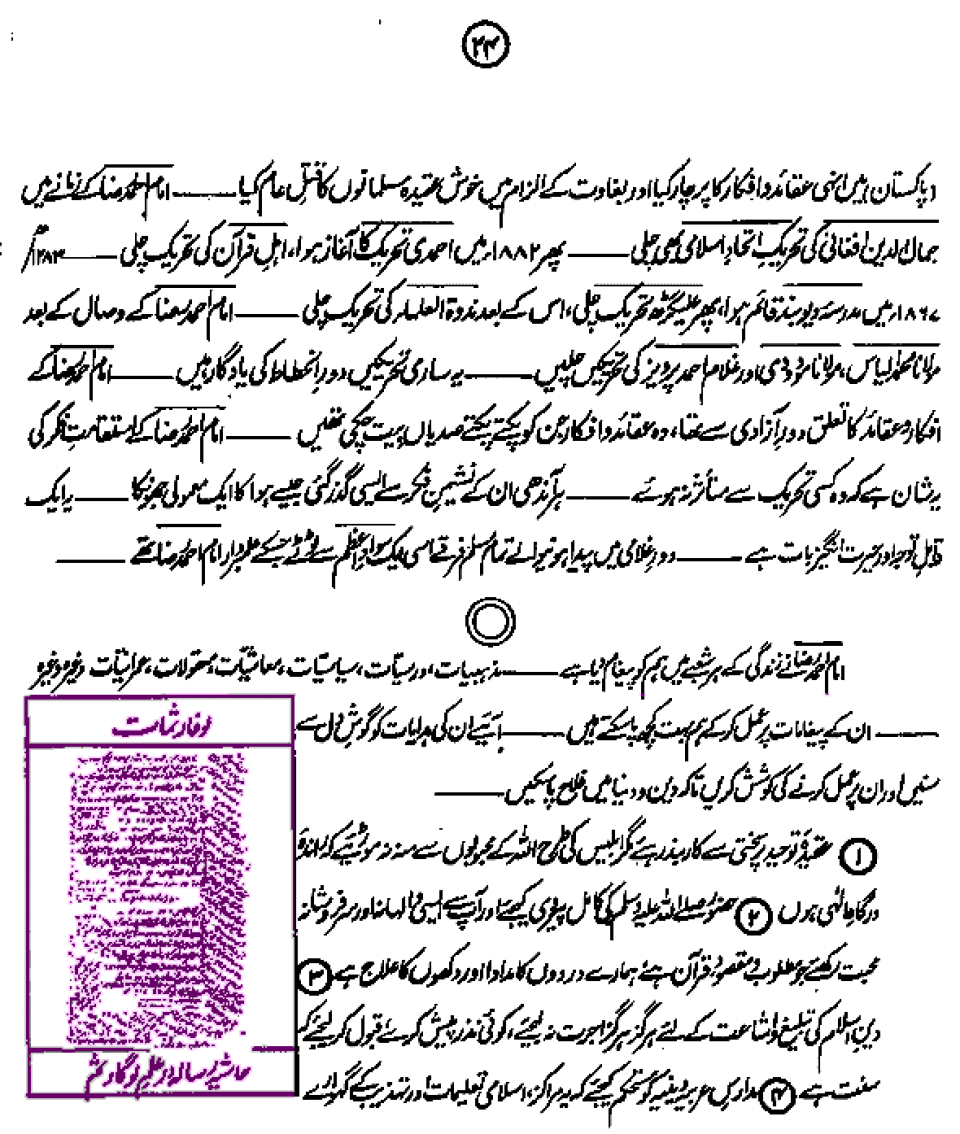 ۲۴
و پاکستان میں انہی عقائد و افکار کا پرچار کیا اور بغاوت کے الزام میں خوش عقیدہ مسلمانوں کا قتل عام کیا ــــــ امام احمد رضا کے زمانے میں
جمال الدین افغانی کی تحریک اتحاد اسلامی بھی چلی ــــــ پھر ۱۸۸۲ء میں احمدی تحریک کا آغاز ہوا، اہل قرآن کی تحریک چلی ــــــ ۱۲۸۳ھ/
۱۸۶۷ء میں مدرسہ دیوبند قائم ہوا، پھر علیگڑھ تحریک چلی، اس کے بعد ندوۃ العلماء کی تحریک چلی ــــــ امام احمد رضا کے وصال کے بعد
مولانا محمد الیاس، مولانا مودودی اور غلام احمد پرویز کی تحریکیں چلیں ــــــ یہ ساری تحریکیں دور انحطاط کی یادگار ہیں ــــــ امام احمد رضا کے
افکار و عقائد کا تعلق دور آزادی سے تھا، وہ عقائد و افکار جن کو پکتے پکتے صدیاں بیت چکی تھیں ــــــ امام احمد رضا کے استقامت فکر کی
یہ شان ہے کہ وہ کسی تحریک سے متأثر نہ ہوئے ــــــ ہر آندھی ان کے نشیمن فکر سے ایسی گذر گئی جیسے ہوا کا ایک معمولی جھونکا ــــــ یہ ایک
قابل توجہ اور حیرت انگیز بات ہے ــــــ دور غلامی میں پیدا ہونیوالے تمام مسلم فرقے اسی ایک سواد اعظم سے ٹوٹے جسکے علمبردار امام احمد رضا تھے ــــــ
امام احمد رضا نے زندگی کے ہر شعبے میں ہم کو پیغام دیا ہے ــــــ مذہبیات، ادبیات، سیاسیات، معاشیات، معقولات، عمرانیات وغیرہ وغیرہ
ــــــ ان کے پیغامات پر عمل کرکے ہم بہت کچھ پا سکتے ہیں ــــــ آیئے ان کی ہدایات کو گوش دل سے
سنیں اور ان پر عمل کرنے کی کوشش کریں تاکہ دین و دنیا میں فلاح پا سکیں ــــــ
۱ عقیدۂ توحید پر سختی سے کاربند رہئے مگر ابلیس کی طرح اللہ کے محبوبوں سے منہ نہ موڑیئے کہ راندۂ
درگاہ الٰہی ہوں ۲ حضور صلے اللہ علیہ وسلم کی کامل پیروی کیجئے اور آپ سے ایسی والہانہ اور سرفروشانہ
محبت رکھیے جو مطلوب و مقصود قرآن ہے، ہمارے دردوں کا مداوا اور دکھوں کا علاج ہے ۳
دین اسلام کی تبلیغ و اشاعت کے لئے ہرگز ہرگز اجرت نہ لیجئے، کوئی نذر پیش کرے قبول کر لیجئے کہ
سنت ہے ۴ مدارس عربیہ دینیہ کو مستحکم کیجئے کہ یہ مراکز، اسلامی تعلیمات اور تہذیب کے گہوارے